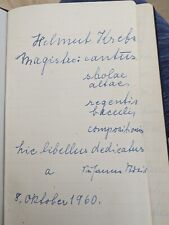 Helmut Krebs
Magistro: cantus
sholae
altae
regentis
bacculis
compositionis
hic libellus dedicatus
a
8. Oktober 1960.